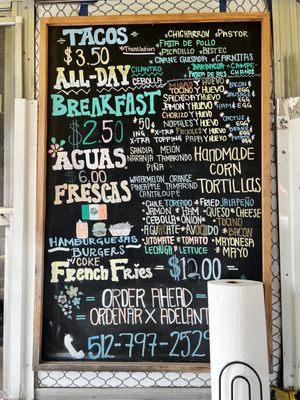 TACOS
$3.50
*Translation
ALL-DAY
CILANTRO
CEBOLLA
BREAKFAST
$2.50
50¢
X-TRA
X-TRA TOPPING
*CHICHARRON *PASTOR
*FAJITA DE POLLO
*PICADILLO *BISTEC
CARNE GUISADA *CARNITAS
*BARBACOA *CAMPECHANOS
*FAJITA DE RES
HUEVO
TOCINO Y HUEVO
SALCHICHA Y HUEVO
JAMON Y HUEVO
CHORIZO Y HUEVO
NOPALES Y HUEVO
FRIJOLES Y HUEVO
PAPA Y HUEVO
EGG
& EGG
AGUAS
$6.00
FRESCAS
SANDIA MELON
NARANJA TAMARINDO
PIÑA
WATERMELON ORANGE
PINEAPPLE TAMARIND
CANTALOUPE
HANDMADE
CORN
TORTILLAS
HAMBURGUESAS
BURGERS
Y COKE
FRENCH FRIES
*CHILE TOREADO *FRIED JALAPEÑO
*JAMON *HAM *QUESO *CHEESE
*CEBOLLA *ONION *TOCINO *BACON
*AGUACATE *AVOCADO
*JITOMATE *TOMATO *MAYONESA
*LECHUGA *LETTUCE *MAYO
$12.00
ORDER AHEAD
ORDENAR X ADELANTADO
512-797-2529